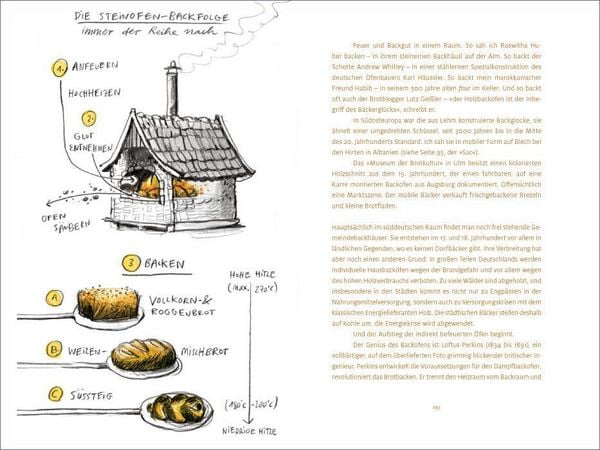 DIE STEINOFEN-BACKFOLGE
immer der Reihe nach
1. ANFEUERN
HOCHHEIZEN
2. GLUT
ENTNEHMEN
OFEN
SÄUBERN
3 BACKEN
HOHE HITZE
(MAX. 270°C)
A VOLLKORN- &
ROGGENBROT
B. WEIZEN-
MISCHBROT
C SÜSSTEIG
(180°C - 200°C)
NIEDRIGE HITZE
Feuer und Backgut in einem Raum. So sah ich Roswitha Hu-
ber backen – in ihrem steinernen Backhäusl auf der Alm. So backt der
Schotte Andrew Whitley – in einer stählernen Spezialkonstruktion des
deutschen Ofenbauers Karl Häussler. So backt mein marokkanischer
Freund Habib – in seinem 500 Jahre alten four im Keller. Und so backt
oft auch der Brotblogger Lutz Geißler – »der Holzbackofen ist der Inbe-
griff des Bäckerglücks«, schreibt er.
In Südosteuropa war die aus Lehm konstruierte Backglocke, sie
ähnelt einer umgedrehten Schüssel, seit 3000 Jahren bis in die Mitte
des 20. Jahrhunderts Standard. Ich sah sie in mobiler Form auf Blech bei
den Hirten in Albanien (siehe Seite 95, der »Sač«).
Das »Museum der Brotkultur« in Ulm besitzt einen kolorierten
Holzschnitt aus dem 15. Jahrhundert, der einen fahrbaren, auf eine
Karre montierten Backofen aus Augsburg dokumentiert. Offensichtlich
eine Marktszene. Der mobile Bäcker verkauft frischgebackene Brezeln
und kleine Brotfladen.
Hauptsächlich im süddeutschen Raum findet man noch frei stehende Ge-
meindebackhäuser. Sie entstehen im 17. und 18. Jahrhundert vor allem in
ländlichen Gegenden, wo es keinen Dorfbäcker gibt. Ihre Verbreitung hat
aber noch einen anderen Grund: In großen Teilen Deutschlands werden
individuelle Hausbacköfen wegen der Brandgefahr und vor allem wegen
des hohen Holzverbrauchs verboten. Zu viele Wälder sind abgeholzt, und
insbesondere in den Städten kommt es nicht nur zu Engpässen in der
Nahrungsmittelversorgung, sondern auch zu Versorgungskrisen mit dem
klassischen Energielieferanten Holz. Die städtischen Bäcker stellen deshalb
auf Kohle um, die Energiekrise wird abgewendet.
Und der Aufstieg der indirekt befeuerten Öfen beginnt.
Der Genius des Backofens ist Loftus Perkins (1834 bis 1891), ein
vollbärtiger, auf dem überlieferten Foto grimmig blickender britischer In-
genieur. Perkins entwickelt die Voraussetzungen für den Dampfbackofen,
revolutioniert das Brotbacken. Er trennt den Heizraum vom Backraum und